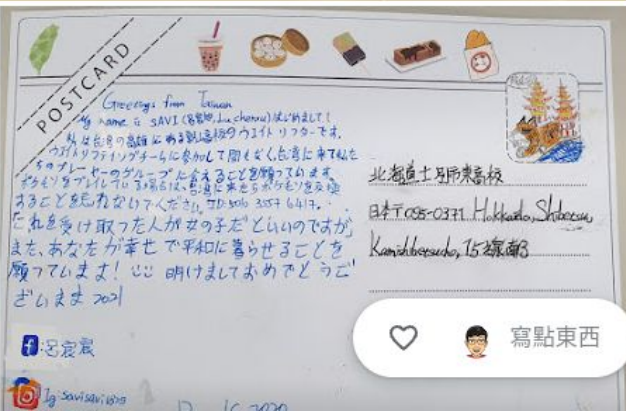 POSTCARD
Greetings from Taiwan
My name is SAVI (呂宸宸, Lu chenxu) はじめまして!
私は台湾の高雄にある 高校のウエイトリフターです。
ウエイトリフティングチームに参加して間もなく、台湾に来て私た
ちのプレーヤーのグループに会えることを願っています。
ポケモンをプレイしている場合は、台湾に来たらポケモンを交換
することを忘れないでください。ID:506 3557 6417.
これを受け取った人が女の子だといいのですが、
また、あなたが幸せで平和に暮らせることを
願っています! 明けましておめでとうご
ざいます 2021
北海道士別市東高校
日本〒095-0371 Hokkaido, Shibetsu,
Kamishibetsucho, 15線南3
f:呂宸
Ig:savisavi
2020
寫點東西